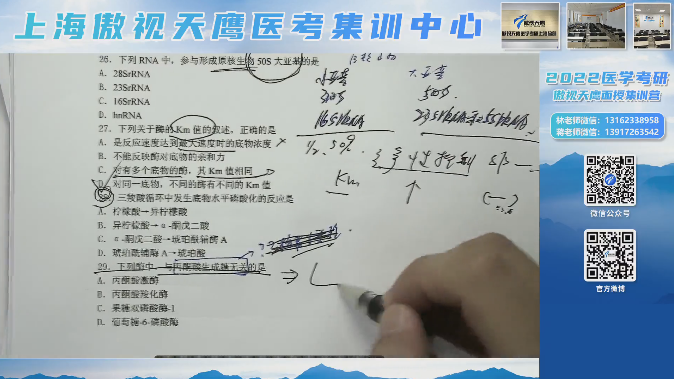 上海傲视天鹰医考集训中心
26. 下列 RNA 中，参与形成原核生物 50S 大亚基的是
A. 28SrRNA
B. 23SrRNA
C. 16SrRNA
D. hnRNA
27. 下列关于酶的 Km 值的叙述，正确的是
A. 是反应速度达到最大速度时的底物浓度
B. 不能反映酶对底物的亲和力
C. 对有多个底物的酶，其 Km 值相同
D. 对同一底物，不同的酶有不同的 Km 值
28. 三羧酸循环中发生底物水平磷酸化的反应是
A. 柠檬酸→异柠檬酸
B. 异柠檬酸→α-酮戊二酸
C. α-酮戊二酸→琥珀酰辅酶 A
D. 琥珀酰辅酶 A→琥珀酸
29. 下列酶中，与丙酮酸生成糖无关的是
A. 丙酮酸激酶
B. 丙酮酸羧化酶
C. 果糖双磷酸酶-1
D. 葡萄糖-6-磷酸酶
小亚基
大亚基
30S
50S
16SrRNA
1/2 50%
Km
2022医学考研
傲视天鹰面授集训营
林老师微信：13162338958
蒋老师微信：13917263542
微信公众号
官方微博